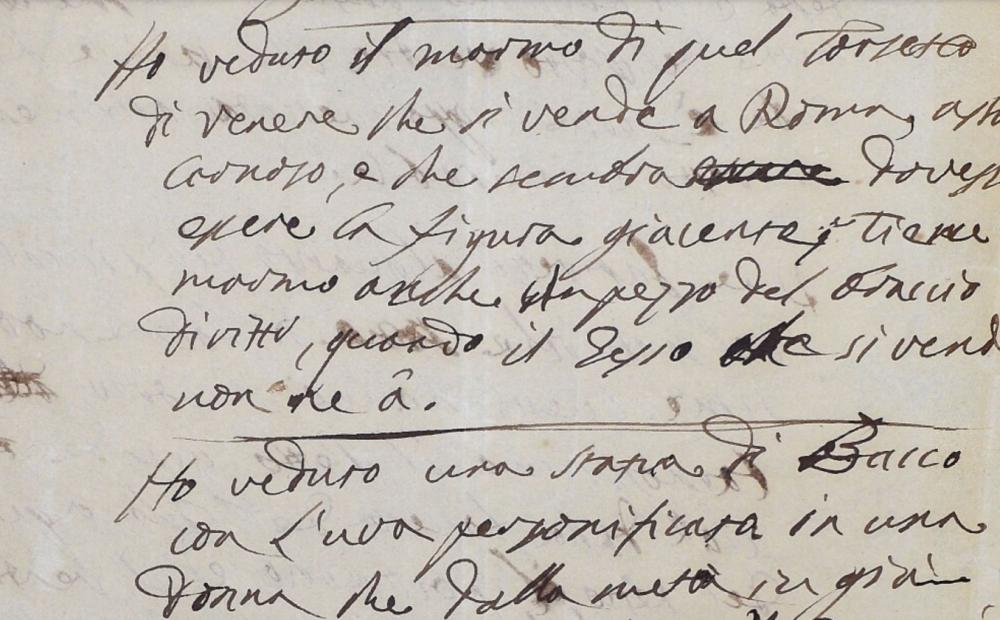 Ho veduto il marmo di quel Torsetto
di venere che si vende a Roma, ass
carnoso, e che sembra dovess
essere la figura giacente, tiene
marmo anche un pezzo del braccio
diritto, quando il Gesso che si vend
non ne â.
Ho veduto una statua di Bacco
con l'uva personificata in una
Donna che dalla metà in giù